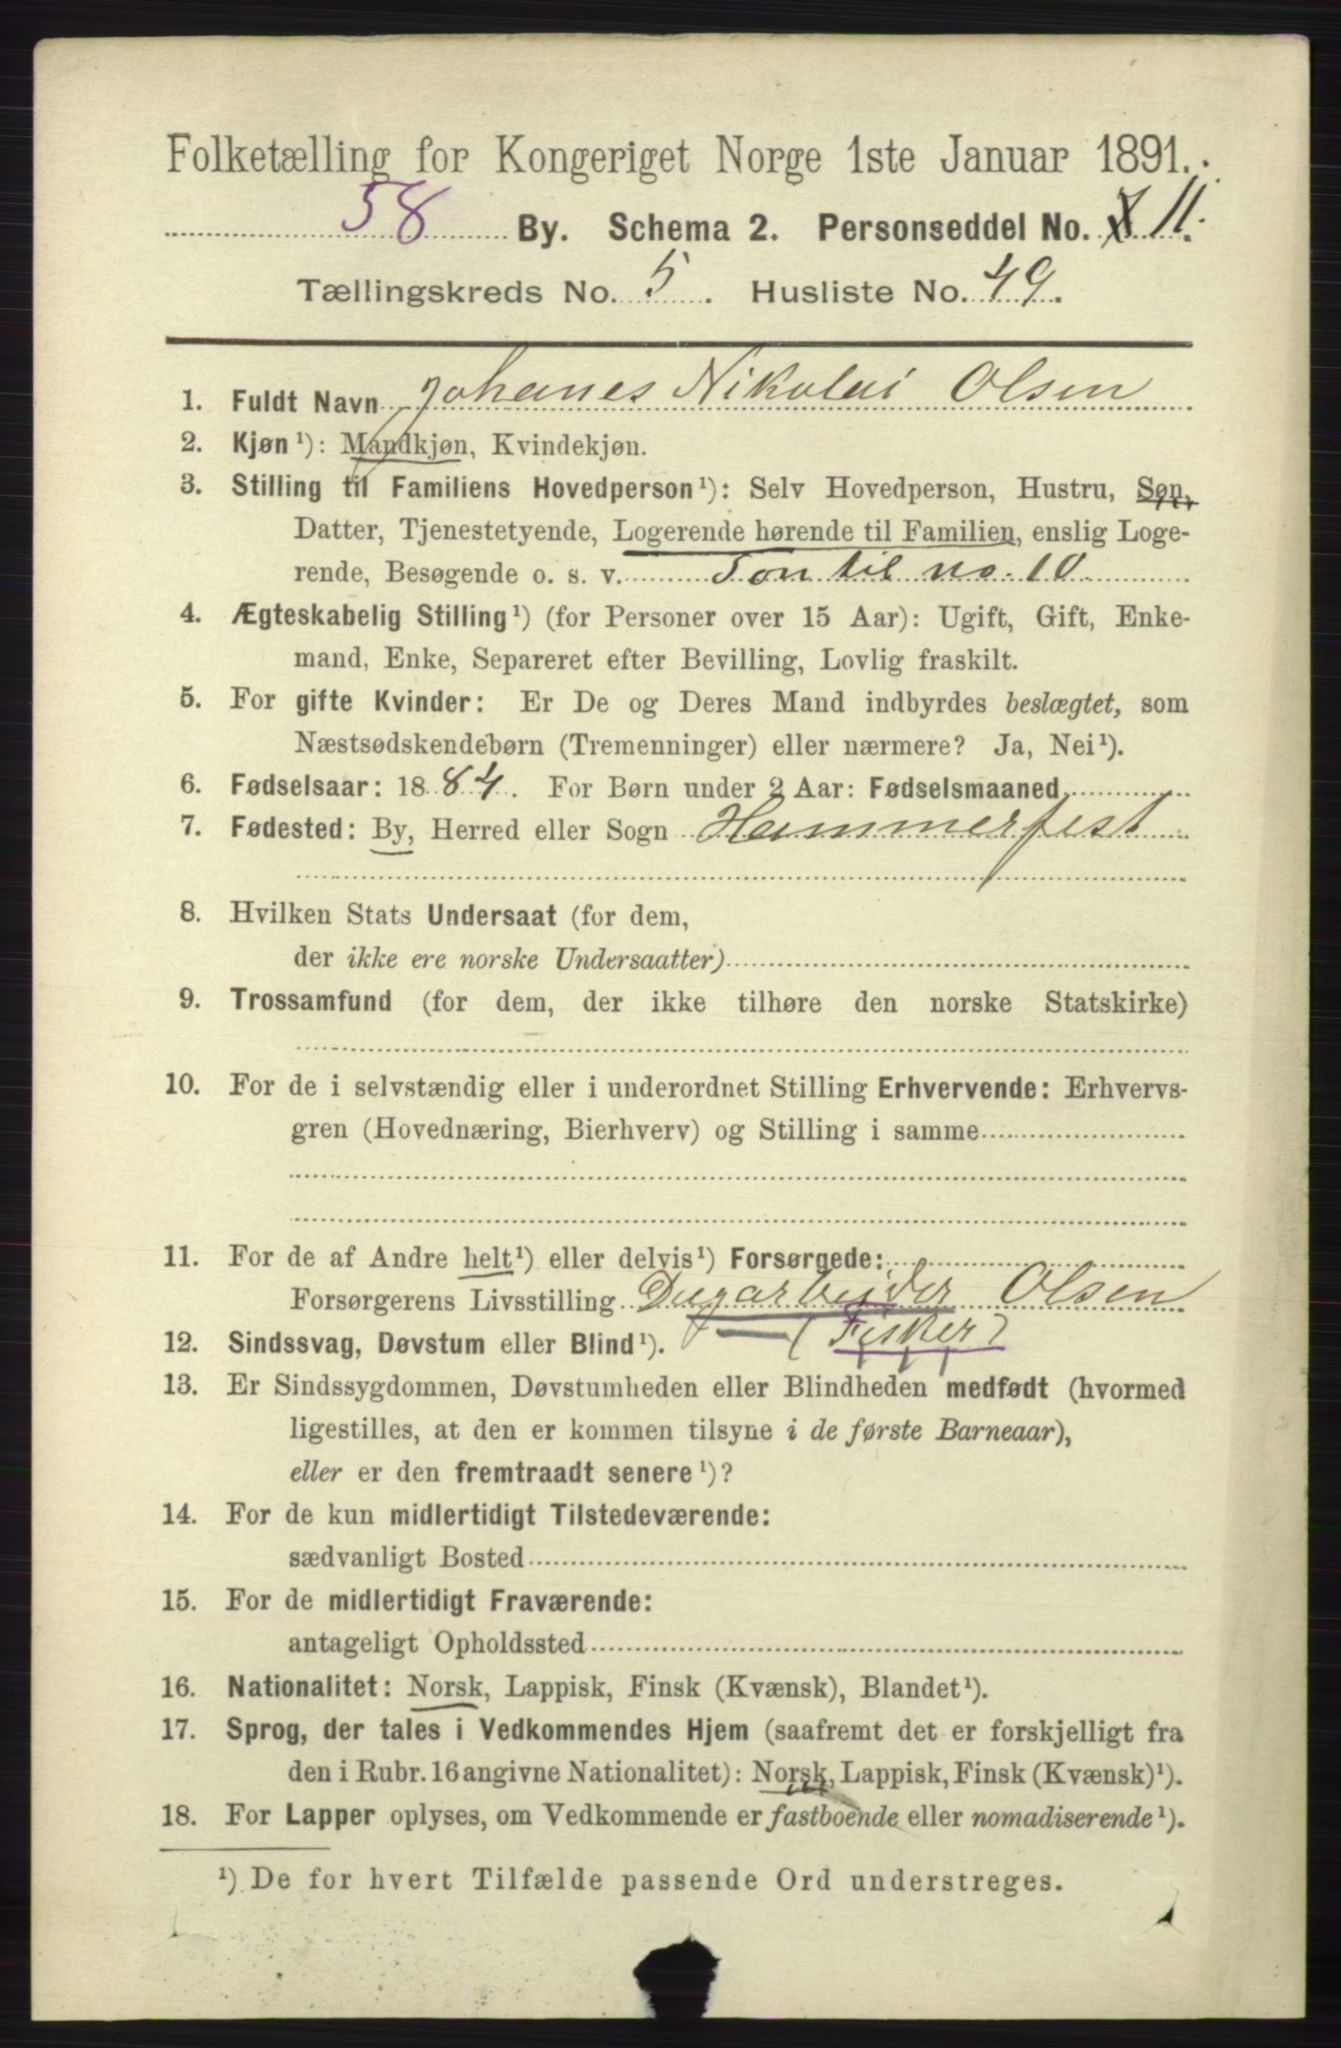 Folketælling for Kongeriget Norge 1ste Januar 1891.
58 By. Schema 2. Personseddel No. 11.
Tællingskreds No. 5. Husliste No. 49.
1. Fuldt Navn Johanes Nikolai Olsen
2. Kjøn¹): Mandkjøn, Kvindekjøn.
3. Stilling til Familiens Hovedperson¹): Selv Hovedperson, Hustru, Søn,
Datter, Tjenestetyende, Logerende hørende til Familien, enslig Loge-
rende, Besøgende o. s. v. Søn til no. 10
4. Ægteskabelig Stilling¹) (for Personer over 15 Aar): Ugift, Gift, Enke-
mand, Enke, Separeret efter Bevilling, Lovlig fraskilt.
5. For gifte Kvinder: Er De og Deres Mand indbyrdes beslægtet, som
Næstsødskendebørn (Tremenninger) eller nærmere? Ja, Nei¹).
6. Fødselsaar: 1884. For Børn under 2 Aar: Fødselsmaaned
7. Fødested: By, Herred eller Sogn Hammerfest
8. Hvilken Stats Undersaat (for dem,
der ikke ere norske Undersaatter)
9. Trossamfund (for dem, der ikke tilhøre den norske Statskirke)
10. For de i selvstændig eller i underordnet Stilling Erhvervende: Erhvervs-
gren (Hovednæring, Bierhverv) og Stilling i samme
11. For de af Andre helt¹) eller delvis¹) Forsørgede:
Forsørgerens Livsstilling Dagarbeider Olsen
(Fisker)
12. Sindssvag, Døvstum eller Blind¹).
13. Er Sindssygdommen, Døvstumheden eller Blindheden medfødt (hvormed
ligestilles, at den er kommen tilsyne i de første Barneaar),
eller er den fremtraadt senere¹)?
14. For de kun midlertidigt Tilstedeværende:
sædvanligt Bosted
15. For de midlertidigt Fraværende:
antageligt Opholdssted
16. Nationalitet: Norsk, Lappisk, Finsk (Kvænsk), Blandet¹).
17. Sprog, der tales i Vedkommendes Hjem (saafremt det er forskjelligt fra
den i Rubr. 16 angivne Nationalitet): Norsk, Lappisk, Finsk (Kvænsk)¹).
18. For Lapper oplyses, om Vedkommende er fastboende eller nomadiserende¹).
¹) De for hvert Tilfælde passende Ord understreges.